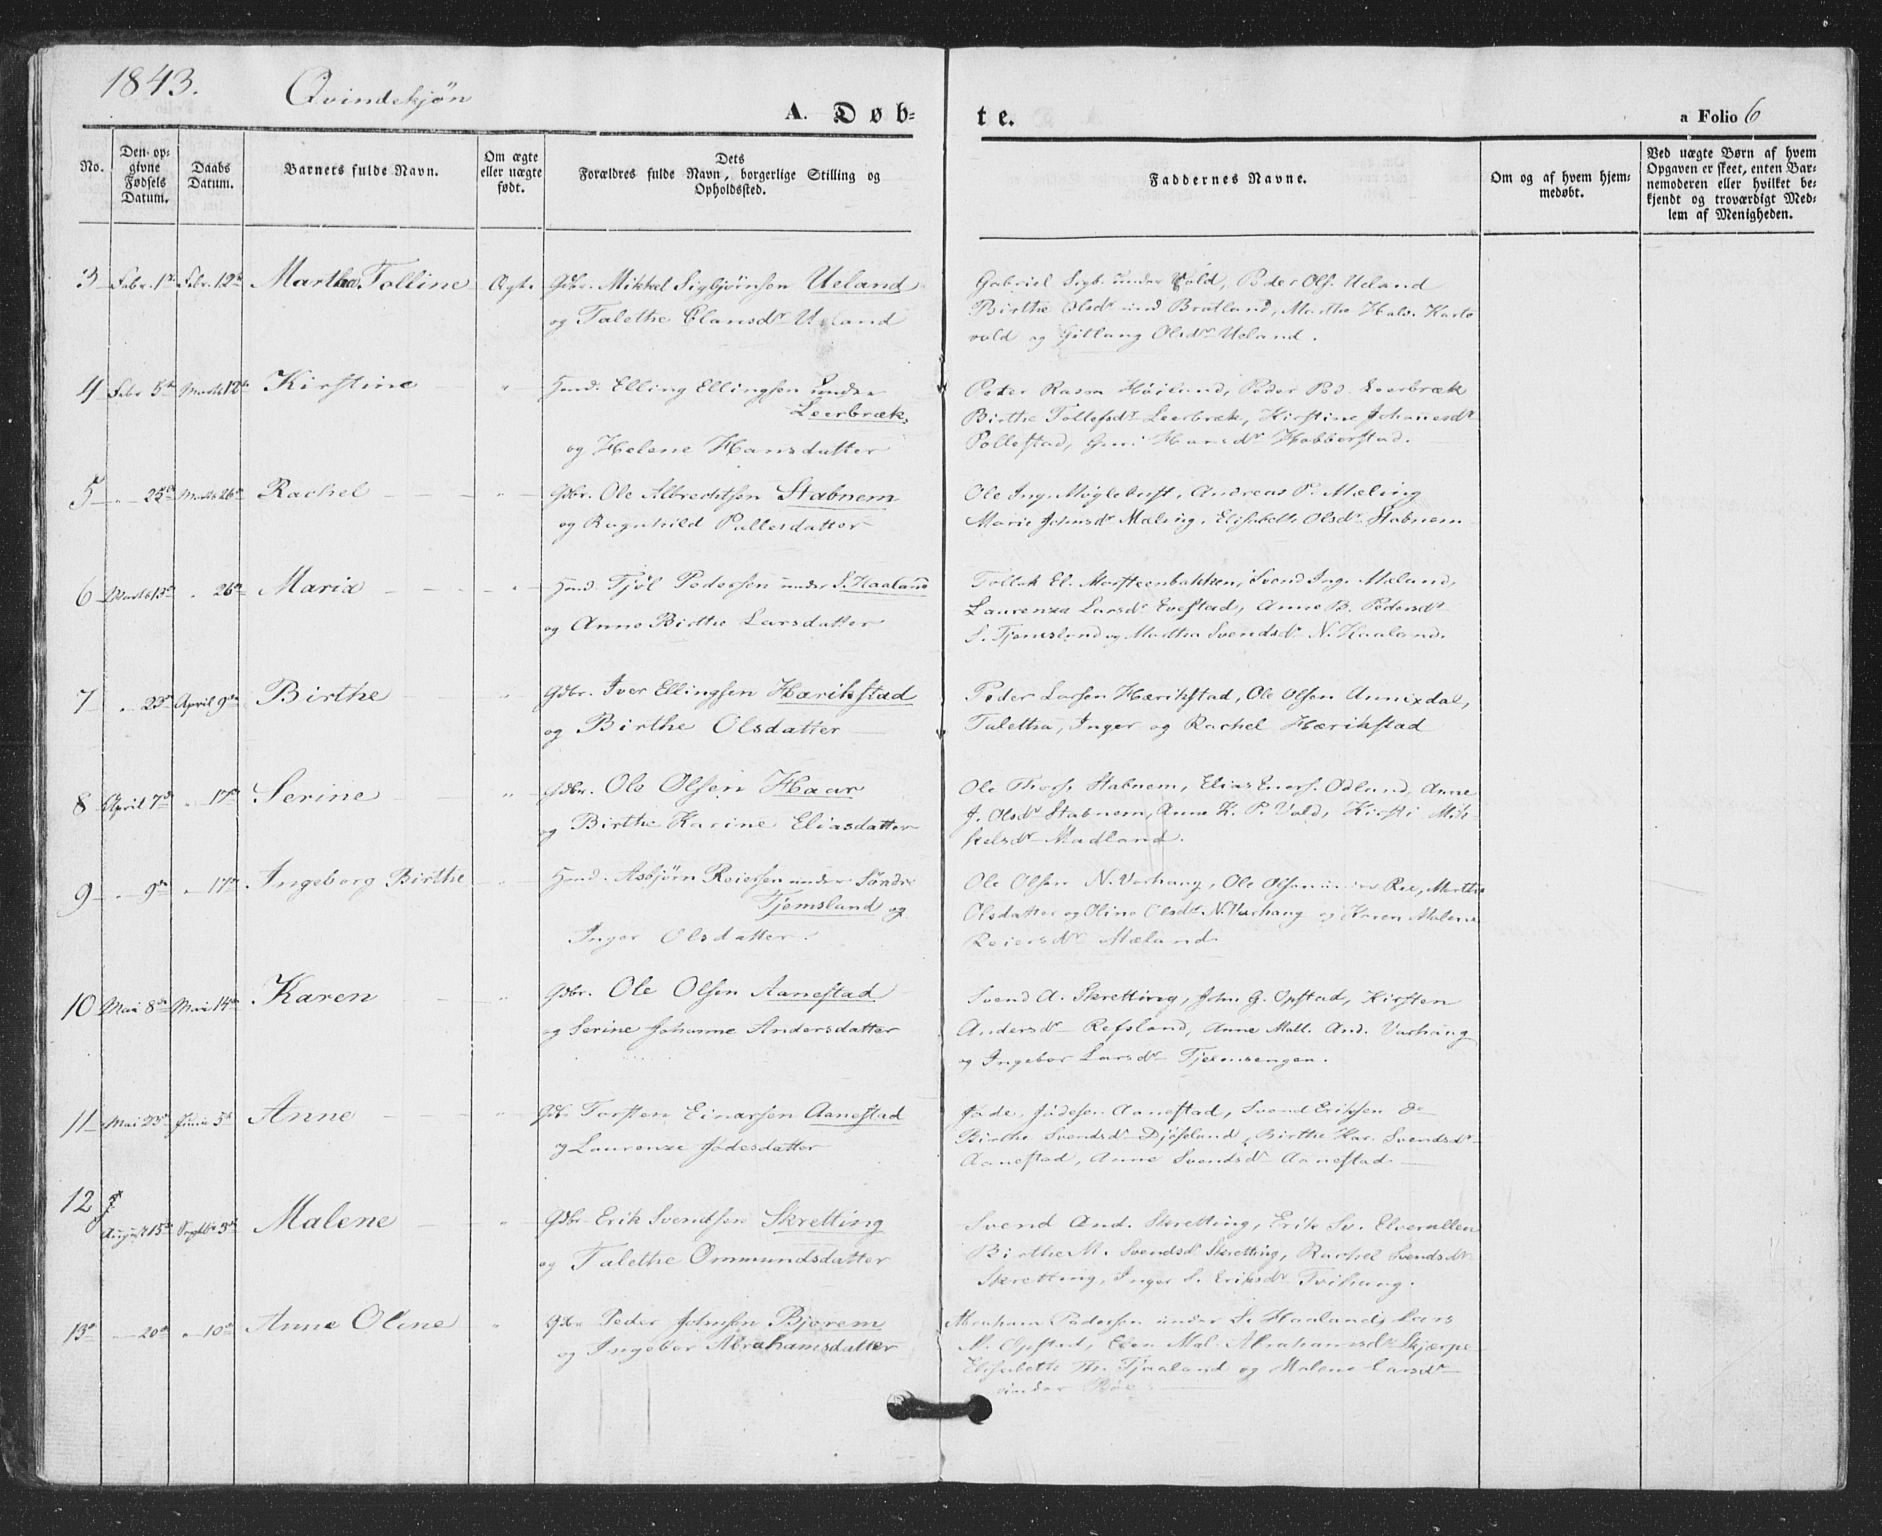 1843. Qvindekjøn
A. Døb-
te.
a Folio 6
No.
Den op-
givne
Fødsels
Datum.
Daabs
Datum.
Barnets fulde Navn.
Om ægte
eller uægte
født.
Dets
Forældres fulde Navn, borgerlige Stilling og
Opholdssted.
Faddernes Navne.
Om og af hvem hjem-
medøbt.
Ved uægte Børn af hvem
Opgaven er skeet, enten Bar-
nemoderen eller hvilket be-
kjendt og troværdigt Med-
lem af Menigheden.
3 Febr. 1ste Febr. 12te Martha Tolline Ægt. Gdbr. Mikkel Sigbjørnsen Ueland
og Talethe Clausdr Ueland
Gabriel Sigb. under Vold, Peder Ols. Ueland
Birthe Olsdr Bratland, Martha Hals. Karls
vold og Olsdr Ueland.
4 Febr 5te Marts 12te Kirstine " Huusd. Elling Ellingsen under
Leerbræk,
og Helene Hansdatter
Peter Rasm Høiland, Peder Pd. Leerbræk
Birthe Tollefsdr Leerbræk, Kirstine Johannesdr
Pollestad, Hansdr Hobberstad.
5 " 25de Marts 26de Rachel " Gdbr. Ole Albrechtsen Stabnem
og Ragnhild Pallesdatter
Ole Ing. Møgletust, Andreas P. Mæling
Marie Johnsdr Mæling, Elisabeth Olsdr Stabnem
6 Marts 13de " 26de Maria " Huusd. Tjøl Pedersen under S. Haaland
og Anne Birthe Larsdatter
Tollak El. Morsteenbakken, Svend Ing. Mæland,
Laurenza Larsdr Evestad, Anne B. Pedersdr
S. Tjemsland og Martha Svendsdr N. Haaland.
7 " 23de April 9de Birthe " Gdbr. Iver Ellingsen Harikstad
og Birthe Olsdatter
Peder Larsen Hærikstad, Ole Olsen Annixdal,
Taletha, Inger og Rachel Hærikstad
8 April 7de " 17de Serine " Gdbr. Ole Olsen Haar
og Birthe Karine Eliasdatter
Ole Thors. Stabnem, Elias Eners. Ødland, Anne
J. Olsdr Stabnem, Anne K. P. Vold, Kirsti Mik-
kelsdr Madland.
9 " 9de " 17de Ingeborg Birthe " Huusd. Asbjørn Reiersen under Søndre
Tjemsland og
Inger Olsdatter.
Ole Olsen N. Varhaug, Ole Olsen under Ree, Marthe
Olsdatter og Oline Olsdr N. Varhaug og Karen Malene
Reiersdr Mæland.
10 Mai 8de Mai 14de Karen " Gdbr. Ole Olsen Aanestad
og Serine Johanne Andersdatter
Svend A. Skretting, John G. Opstad, Kirsten
Andersdr Refsland, Anne Mall. And. Varhaug
og Ingebor Larsdr Tjelmsengen.
11 Mai 23de Junii 5te Anne " Gdb. Torsten Einarsen Aanestad
og Laurenze Jødesdatter
Jøde Jødesen Aanestad, Svend Eriksen do
Birthe Svendsdr Djøseland, Birthe Kar. Svendsdr
Aanestad, Anne Svendsdr Aanestad
12
August 15de Septbr 3de Malene " Gdbr Erik Svendsen Skretting
og Talethe Ommundsdatter
Svend And. Skretting, Erik Sv. Elverallen
Birthe M. Svendsdr Skretting, Rachel Svendsdr
Skretting, Inger S. Eriksdr Tvihaug.
13 " 20de " 10de Anne Oline " Gdbr Peder Johnsen Bjorem
og Ingebor Abrahamsdatter
Abraham Pedersen under S. Haaland, Lars
M. Opstad, Mal. Abrahamsdr Skjærpe
Elisabeth Th. Tjaaland og Malene Larsdr
under